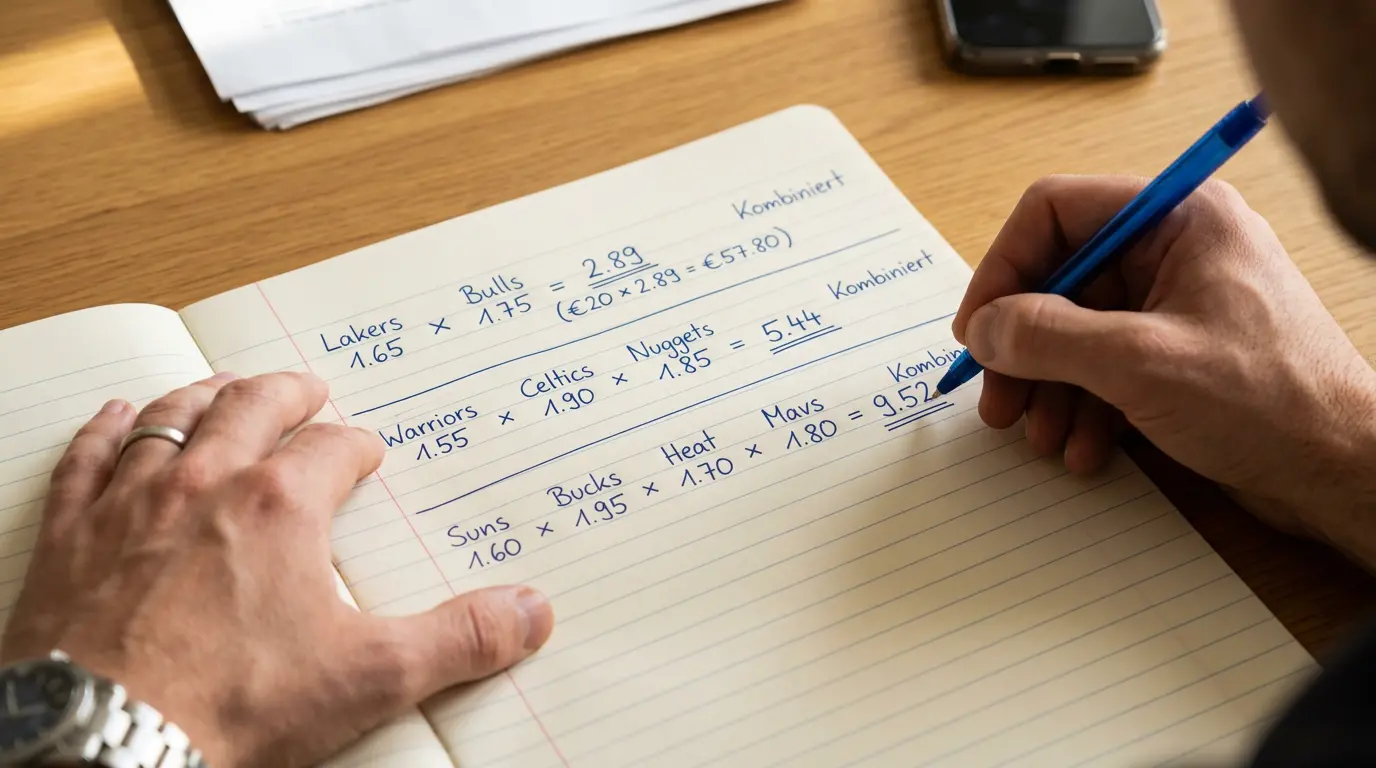 Kombiniert
Lakers Bulls
1.65 × 1.75 = 2.89
(€20 × 2.89 = €57.80)
Kombiniert
Warriors Celtics Nuggets
1.55 × 1.90 × 1.85 = 5.44
Suns Bucks Heat Mavs
1.60 × 1.95 × 1.70 × 1.80 = 9.52